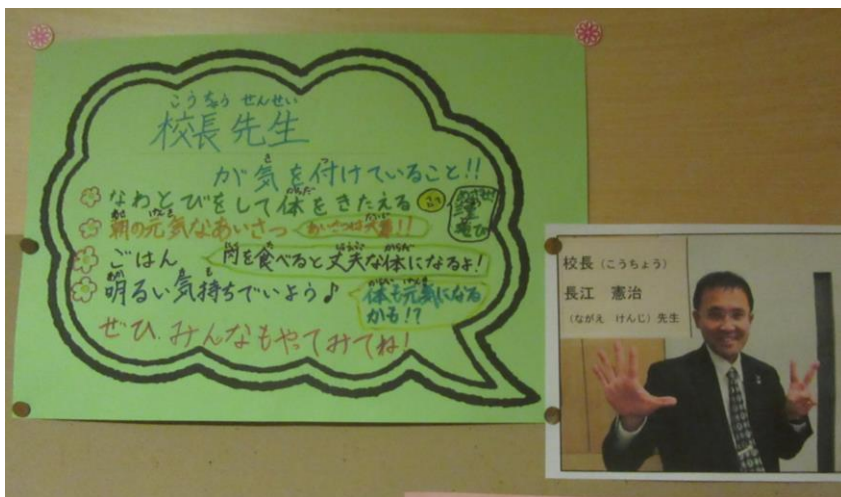 こうちょう せんせい
校長先生
が気を付けていること!!
なわとびをして体をきたえる
朝の元気なあいさつ あいさつは大事!!
ごはん 肉を食べると丈夫な体になるよ!
明るい気持ちでいよう♪ 体も元気になる
かも!?
ぜひ、みんなもやってみてね!
校長(こうちょう)
長江 憲治
(ながえ けんじ)先生